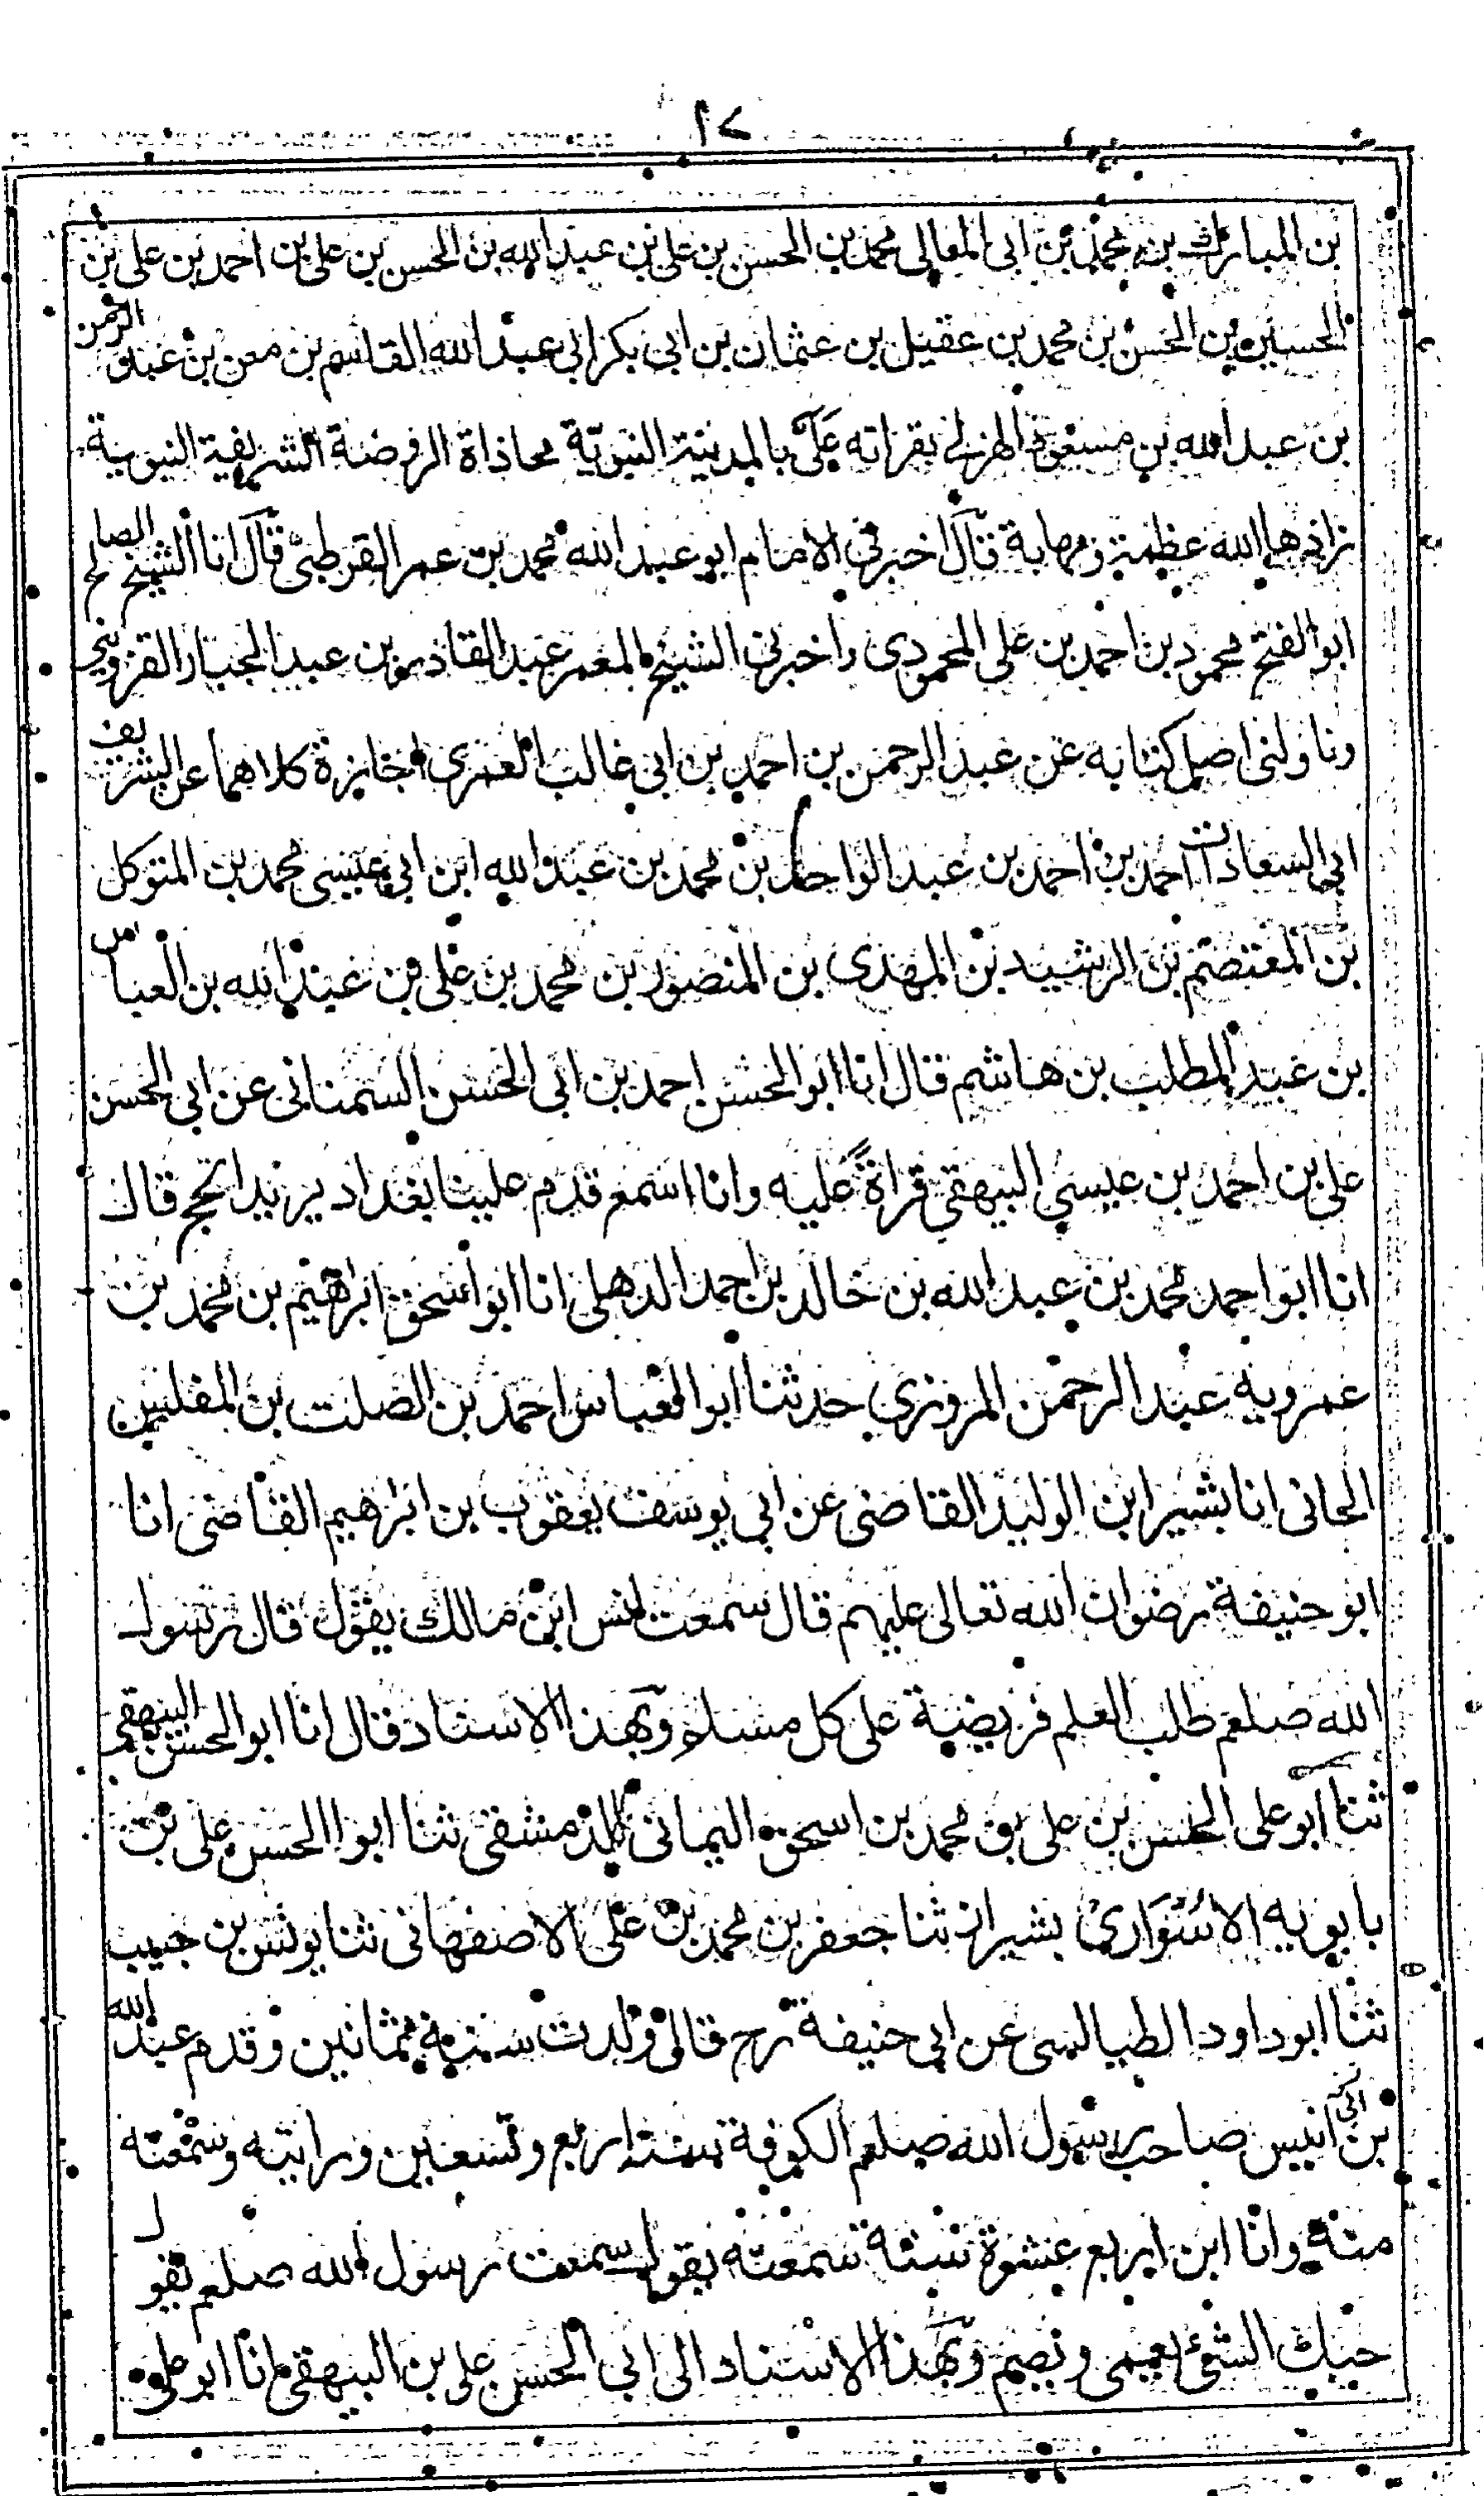 ١٧
بن المبارك بن محمد بن ابى المعالى محمد بن الحسن بن على بن عبد الله بن الحسن بن على بن احمد بن على بن
الحسين بن الحسن بن محمد بن عقيل بن عثمان بن ابى بكر ابى عبد الله القاسم بن معن بن عبد الرحمن
بن عبد الله بن مسعود الهزلى بقراته على بالمدينة النبوية محاذاة الروضة الشريفة النبوية
زادها الله عظمة ومهابة قال اخبرنى الامام ابو عبد الله محمد بن عمر القرطبى قال انا الشيخ الصالح
ابو الفتح محمود بن احمد بن على المحمودى واخبرنى الشيخ المعمر عبد القادر بن عبد الجبار القزوينى
وناولنى اصل كتابه عن عبد الرحمن بن احمد بن ابى غالب العمرى اجازة كلاهما عن الشريف
ابى السعادات احمد بن احمد بن عبد الواحد بن محمد بن عبد الله ابن ابى عيسى محمد بن المتوكل
بن المعتصم بن الرشيد بن المهدى بن المنصور بن محمد بن على بن عبد الله بن العباس
بن عبد المطلب بن هاشم قال انا ابو الحسن احمد بن ابى الحسن السمنانى عن ابى الحسن
على بن احمد بن عيسى البيهقى قراة عليه وانا اسمع قدم علينا بغداد يريد الحج قال
انا ابو احمد محمد بن عبد الله بن خالد بن احمد الذهلى انا ابو اسحق ابرهيم بن محمد بن
عمرويه عبد الرحمن المروزى حدثنا ابو العباس احمد بن الصلت بن المغلس
الحانى انا بشير ابن الوليد القاضى عن ابى يوسف يعقوب بن ابرهيم القاضى انا
ابو حنيفة رضوان الله تعالى عليهم قال سمعت انس ابن مالك يقول قال رسول
الله صلعم طلب العلم فريضة على كل مسلم وبهذا الاسناد قال انا ابو الحسن البيهقى
ثنا ابو على الحسن بن على بن محمد بن اسحق اليمانى الدمشقى ثنا ابو االحسن على بن
بابويه الاسوارى بشيراز ثنا جعفر بن محمد بن على الاصفهانى ثنا يونس بن حبيب
ثنا ابو داود الطيالسى عن ابى حنيفة رح قال ولدت سنة ثمانين وقدم عبد الله
بن ابى انيس صاحب رسول الله صلعم الكوفة سنة اربع وتسعين ورايته وسمعته
منه وانا ابن اربع عشرة سنة سمعته يقول سمعت رسول الله صلعم يقول
حبك الشئ يعمى ويصم وبهذا الاسناد الى ابى الحسن على بن البيهقى انا ابو على